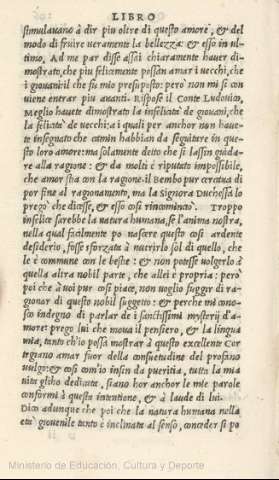 LIBRO
stimulauano à dir piu oltre di questo amore, & del
modo di fruire ueramente la bellezza: & esso in ul-
timo, Ad me par disse assai chiaramente hauer di-
mostrato, che piu felicemente possan amar i uecchi, che
i giouani: il che fu mio presuposto: però non mi si con
uiene entrar piu auanti. Rispose il Conte Ludouico,
Meglio hauete dimostrato la infelicità de giouani, che
la felicità de uecchi: a i quali per anchor non haue-
te insegnato che camin habbian da seguitare in que-
sto loro amore: ma solamente detto che si lassin guida-
re alla ragione: & da molti è riputato impossibile,
che amor stia con la ragione. il Bembo pur cercaua di
por fine al ragionamento, ma la Signora Duchessa lo
pregò che dicesse, & esso cosi rincominciò. Troppo
infelice sarebbe la natura humana, se l'anima nostra,
nella qual facilmente po nascere questo cosi ardente
desiderio, fosse sforzata à nutrirlo sol di quello, che
le è commune con le bestie: & non potesse uolgerlo à
quella altra nobil parte, che allei è propria: però
poi che à uoi pur cosi piace, non uoglio fuggir di ra-
gionar di questo nobil suggetto: & perche mi cono-
sco indegno di parlar de i santissimi mysterij d'a-
more: prego lui che moua il pensiero, & la lingua
mia, tanto ch'io possa mostrar à questo excellente Cor
tegiano amar fuor della consuetudine del profano
uulgo: & cosi com'io insin da pueritia, tutta la mia
uita gliho dedicata, siano hor anchor le mie parole
conformi à questa intentione, & à laude di lui.
Dico adunque che poi che la natura humana nella
età giouenile tanto è inclinata al senso, conceder si po
Ministerio de Educación, Cultura y Deporte